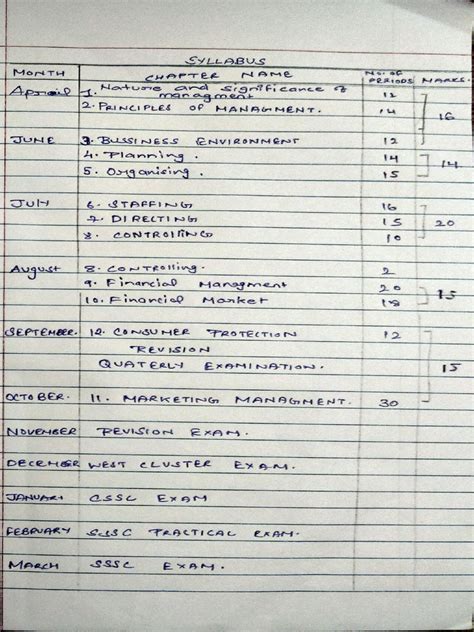 SYLLABUS
MONTH CHAPTER NAME NO. OF PERIODS MARKS.
Apriail 1. Nature and significance of managment 12
2. PRINCIPLES OF MANAGMENT. 14 16
JUNE 3. BUSSINESS ENVIRONMENT 12
4. Planning. 14 14
5. Organising. 15
JUly 6. STAFFING 16
7. DIRECTING 15 20
8. CONTROlling 10
August 8. CONTROlling. 2
9. Financial Managment 20 15
10. Financial Market 18
SEPTEMBER. 12. CONSUMER PROTECTION 12
REVISION
QUATERLY EXAMINATION. 15
OCTOBER. 11. MARKETING MANAGMENT. 30
NOVEMBER REVISION EXAM.
DECEMBER WEST CLUSTER EXAM.
JANUARY CSSC EXAM
FEBRUARY SSSC PRACTICAL EXAM.
MARCH SSSC EXAM.